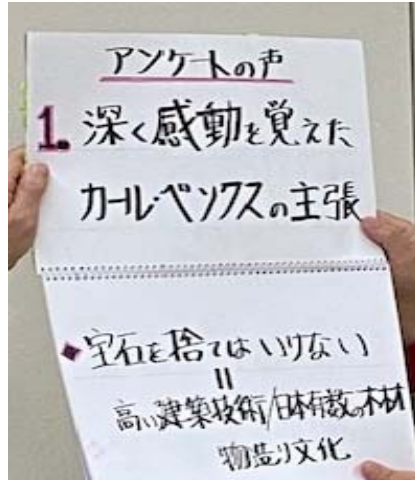 アンケートの声
1. 深く感動を覚えた
カール・ベンクスの主張
◆宝石を捨てはいけない
=
高い建築技術/日本有数の木材
物造り文化